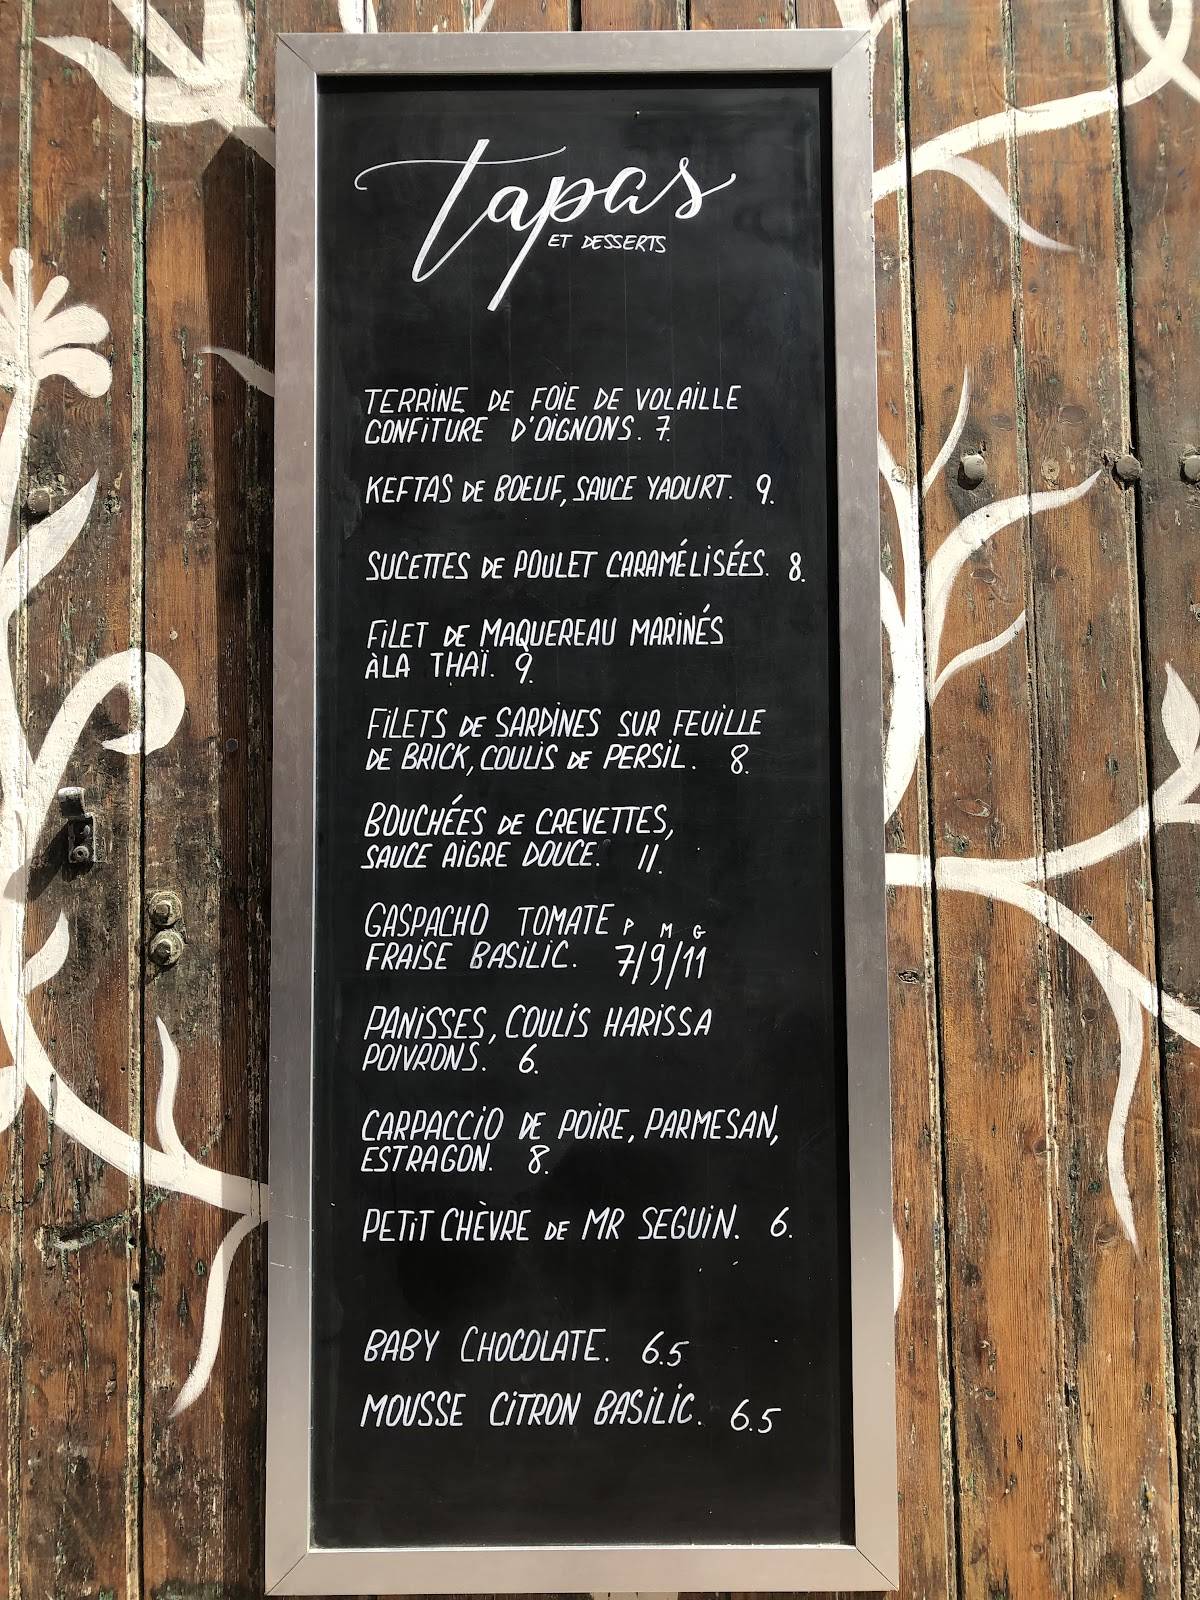 Tapas
ET DESSERTS
TERRINE DE FOIE DE VOLAILLE
CONFITURE D'OIGNONS. 7.
KEFTAS DE BOEUF, SAUCE YAOURT. 9.
SUCETTES DE POULET CARAMÉLISÉES. 8.
FILET DE MAQUEREAU MARINÉS
À LA THAÏ. 9.
FILETS DE SARDINES SUR FEUILLE
DE BRICK, COULIS DE PERSIL. 8.
BOUCHÉES DE CREVETTES,
SAUCE AIGRE DOUCE. 11.
GASPACHO TOMATE P M G
FRAISE BASILIC. 7/9/11
PANISSES, COULIS HARISSA
POIVRONS. 6.
CARPACCIO DE POIRE, PARMESAN,
ESTRAGON. 8.
PETIT CHÈVRE DE MR SEGUIN. 6.
BABY CHOCOLATE. 6.5
MOUSSE CITRON BASILIC. 6.5